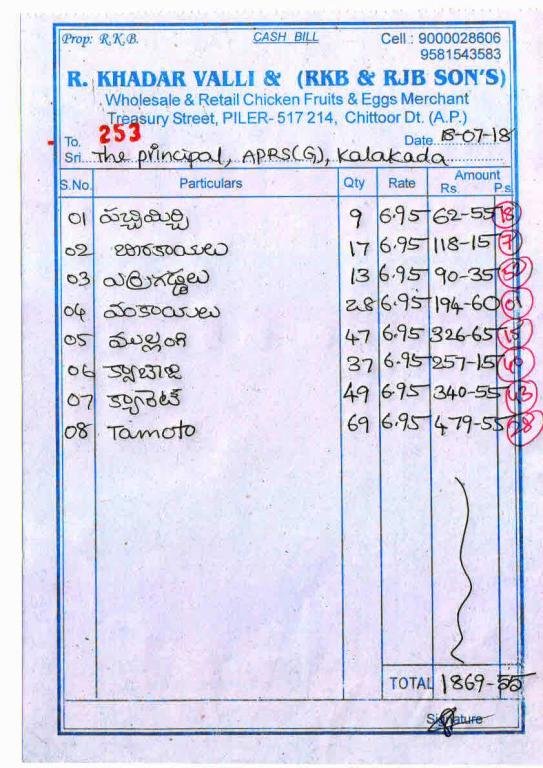 Prop: R.K.B. CASH BILL Cell : 9000028606
9581543583
R. KHADAR VALLI & (RKB & RJB SON'S)
Wholesale & Retail Chicken Fruits & Eggs Merchant
Treasury Street, PILER- 517 214, Chittoor Dt. (A.P.)
To. 253 Date 18-07-18
Sri. The principal, APRS(G), Kalakada
S.No. Particulars Qty Rate Amount
Rs. P.s
01 పచ్చిమిర్చి 9 6.95 62-55 18
02 బీరకాయలు 17 6.95 118-15 7
03 ఎర్రగడ్డలు 13 6.95 90-35 52
04 వంకాయలు 28 6.95 194-60 01
05 ముల్లంగి 47 6.95 326-65 15
06 క్యాబేజి 37 6.95 257-15 40
07 క్యారెట్ 49 6.95 340-55 43
08 Tamoto 69 6.95 479-55 28
TOTAL 1869-55
Signature